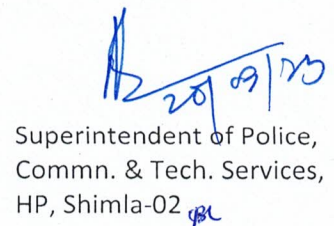 20/09/23
Superintendent of Police,
Commn. & Tech. Services,
HP, Shimla-02